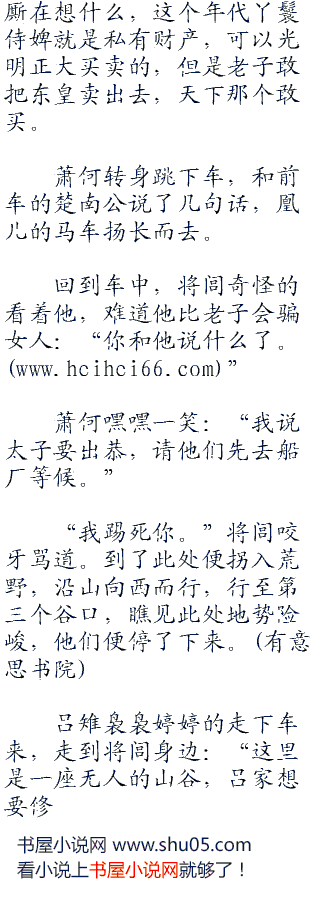 厮在想什么，这个年代丫鬟
侍婢就是私有财产，可以光
明正大买卖的，但是老子敢
把东皇卖出去，天下那个敢
买。
萧何转身跳下车，和前
车的楚南公说了几句话，凰
儿的马车扬长而去。
回到车中，将闾奇怪的
看着他，难道他比老子会骗
女人：“你和他说什么了。
(www.hcihci66.com)”
萧何嘿嘿一笑：“我说
太子要出恭，请他们先去船
厂等候。”
“我踢死你。”将闾咬
牙骂道。到了此处便拐入荒
野，沿山向西而行，行至第
三个谷口，瞧见此处地势险
峻，他们便停了下来。(有意
思书院)
吕雉袅袅婷婷的走下车
来，走到将闾身边：“这里
是一座无人的山谷，吕家想
要修
书屋小说网 www.shu05.com
看小说上书屋小说网就够了！